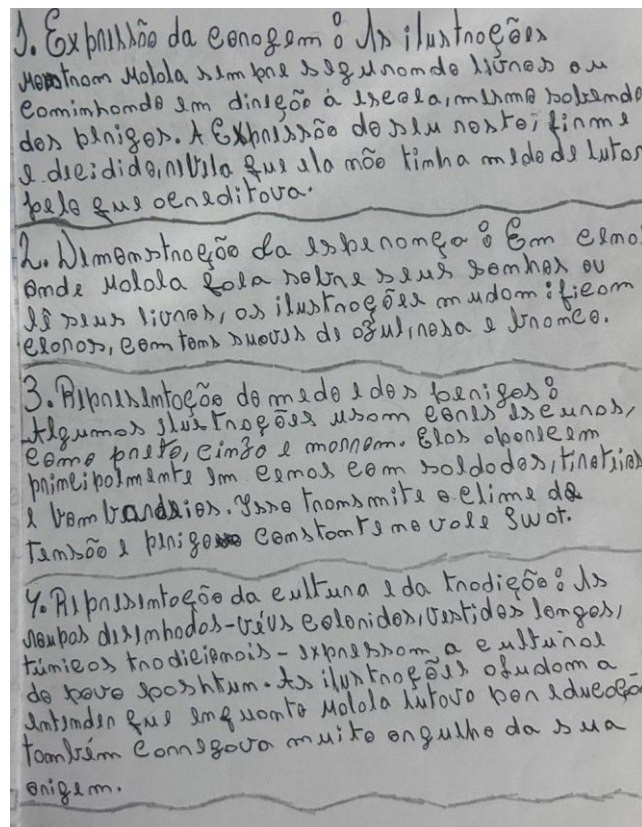 1. Expressão da coragem: As ilustrações
mostram Malala sempre segurando livros ou
caminhando em direção à escola, mesmo sabendo
dos perigos. A Expressão do seu rosto, firme
e decidido, revela que ela não tinha medo de lutar
pelo que acreditava.
2. Demonstração da esperança: Em cenas
onde Malala fala sobre seus sonhos ou
lê seus livros, as ilustrações mudam: ficam
claras, com tons suaves de azul, rosa e branco.
3. Representação do medo e dos perigos:
Algumas ilustrações usam cores escuras,
como preto, cinza e marrom. Elas aparecem
principalmente em cenas com soldados, tiroteios
e bombardeios. Isso transmite o clima de
tensão e perigo constante no vale Swat.
4. Representação da cultura e da tradição: As
roupas desenhadas-véus coloridos, vestidos longos,
túnicas tradicionais - expressam a cultura
do povo pashtum. As ilustrações ajudam a
entender que enquanto Malala lutava por educação
também carregava muito orgulho da sua
origem.